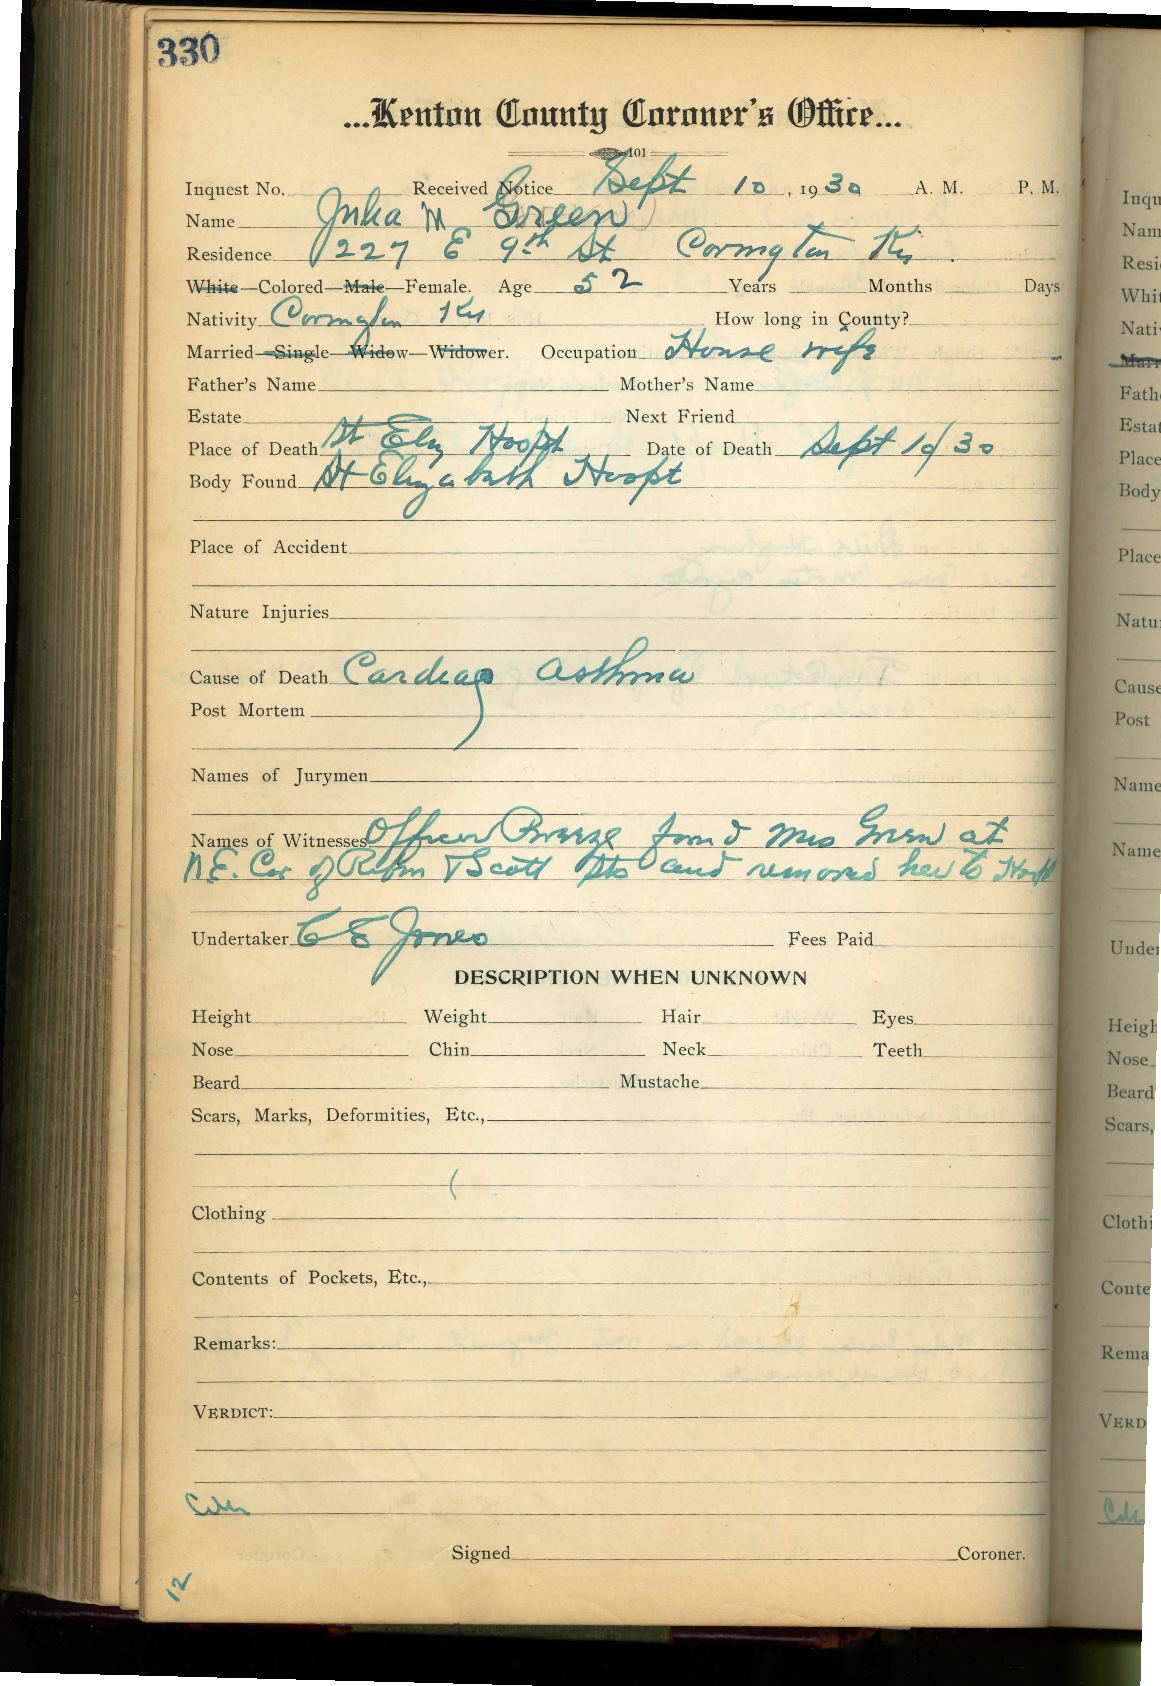 330
...Kenton County Coroner's Office...
101
Inquest No. Received Notice Sept 10, 1930 A. M. P. M.
Name Julia M Green
Residence 227 E 9th St Covington Ky.
White—Colored—Male—Female. Age 52 Years Months Days
Nativity Covington Ky How long in County?
Married—Single—Widow—Widower. Occupation House wife
Father's Name Mother's Name
Estate Next Friend
Place of Death St Eliz Hospt Date of Death Sept 10/30
Body Found St Elizabeth Hospt
Place of Accident
Nature Injuries
Cause of Death Cardiac asthma
Post Mortem
Names of Jurymen
Names of Witnesses Officer Breeze found Mrs Green at
N.E. Cor of Robn & Scott Sts and removed her to Hospt
Undertaker C E Jones Fees Paid
DESCRIPTION WHEN UNKNOWN
Height Weight Hair Eyes
Nose Chin Neck Teeth
Beard Mustache
Scars, Marks, Deformities, Etc.,
Clothing
Contents of Pockets, Etc.,
Remarks:
VERDICT:
Signed Coroner.
12
Inqu
Nam
Resi
Whit
Nati
Marr
Fath
Estat
Place
Body
Place
Natu
Cause
Post
Name
Name
Under
Heigh
Nose
Beard
Scars,
Clothi
Conte
Rema
VERD